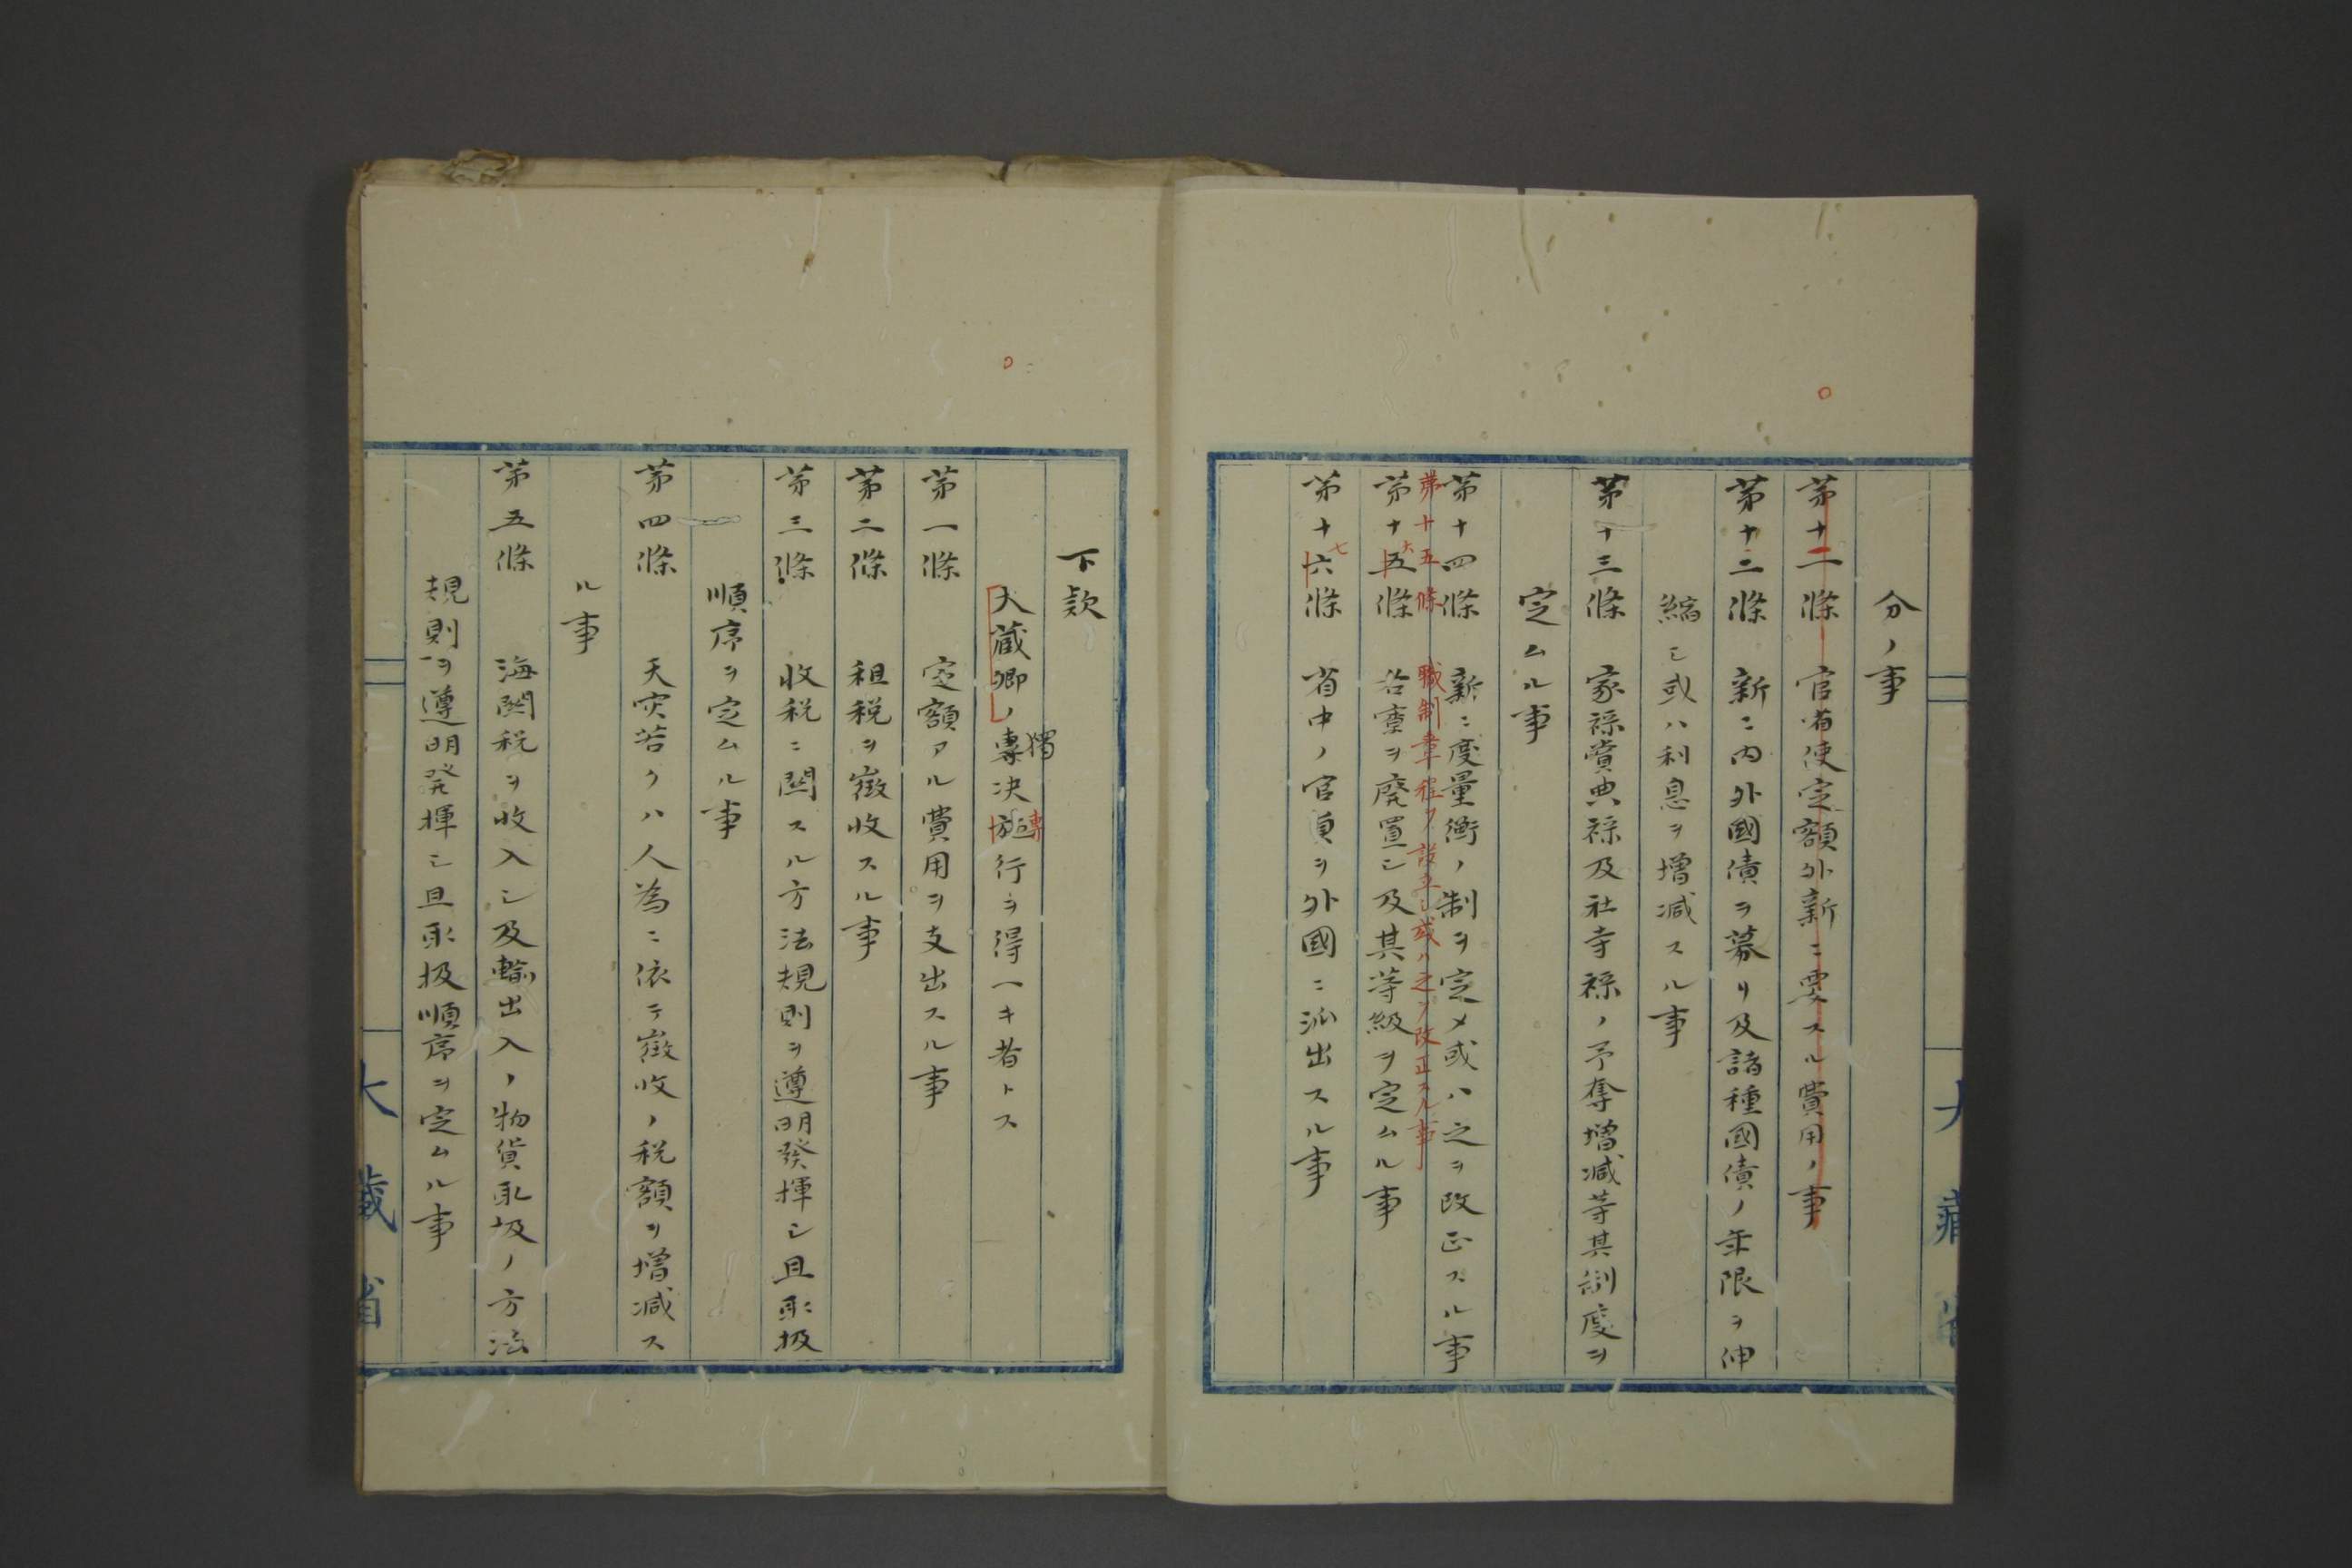 分ノ事
第十二條 官省使定額外新ニ要スル費用ノ事
第十二條 新ニ内外國債ヲ募リ及諸種國債ノ年限ヲ伸
縮シ或ハ利息ヲ増減スル事
第十三條 家祿賞典祿及社寺祿ノ予奪増減等其制度ヲ
定ムル事
第十四條 新ニ度量衡ノ制ヲ定メ或ハ之ヲ改正スル事
第十五條 職制章程ヲ設立シ或ハ之ヲ改正スル事
第十五條 各寮ヲ廃置シ及其等級ヲ定ムル事
六
第十六條 省中ノ官員ヲ外國ニ派出スル事
七
大藏省
下款
大蔵卿ノ專决施行ヲ得ヘキ者トス
獨
專
第一條 定額アル費用ヲ支出スル事
第二條 租税ヲ徴收スル事
第三條 收税ニ関スル方法規則ヲ遵明発揮シ且取扱
順序ヲ定ムル事
第四條 天灾若クハ人為ニ依テ徴收ノ税額ヲ増減ス
ル事
第五條 海関税ヲ收入シ及輸出入ノ物貨取扱ノ方法
規則ヲ遵明発揮シ且取扱順序ヲ定ムル事
大藏省